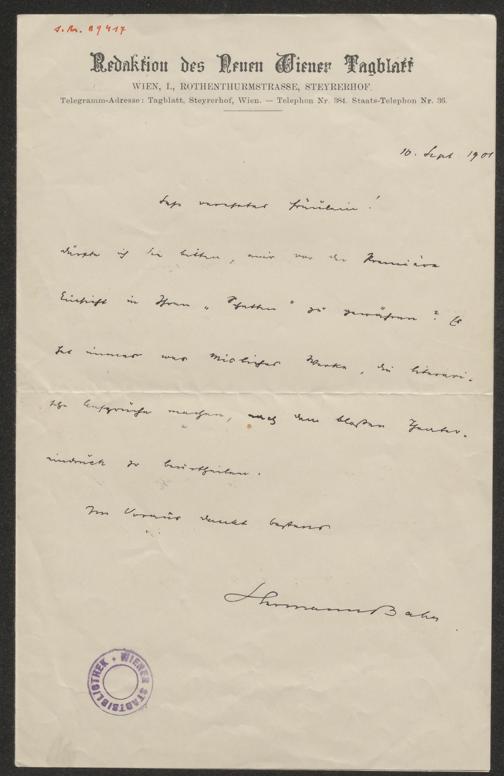 I. N. 89417
Redaktion des Neuen Wiener Tagblatt
WIEN, I., ROTHENTHURMSTRASSE, STEYRERHOF.
Telegramm-Adresse: Tagblatt, Steyrerhof, Wien. — Telephon Nr. 384. Staats-Telephon Nr. 36.
10. Sept 1901
Sehr verehrtes Fräulein!
Dürfte ich Sie bitten, mir vor der Première
Einsicht in Ihren „Schatten“ zu gewähren? Es
hat immer was Misliches Werke, die literari-
sche Ansprüche machen, nach dem bloßen Theater-
eindruck zu beurtheilen.
Im Voraus dankt bestens
Hermann Bahr
WIENER STADTBIBLIOTHEK